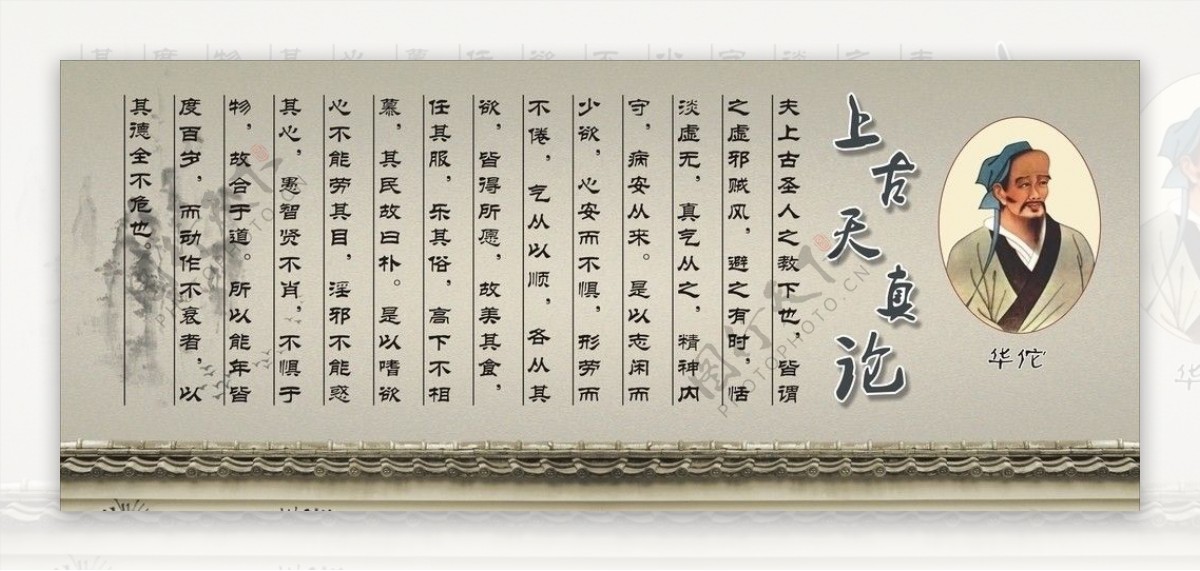 上古天真论
华佗
夫上古圣人之教下也，皆谓
之虚邪贼风，避之有时，恬
淡虚无，真气从之，精神内
守，病安从来。是以志闲而
少欲，心安而不惧，形劳而
不倦，气从以顺，各从其
欲，皆得所愿，故美其食，
任其服，乐其俗，高下不相
慕，其民故曰朴。是以嗜欲
心不能劳其目，淫邪不能惑
其心，愚智贤不肖，不惧于
物，故合于道。所以能年皆
度百岁，而动作不衰者，以
其德全不危也。
图行天下
PHOTOPHOTO.CN